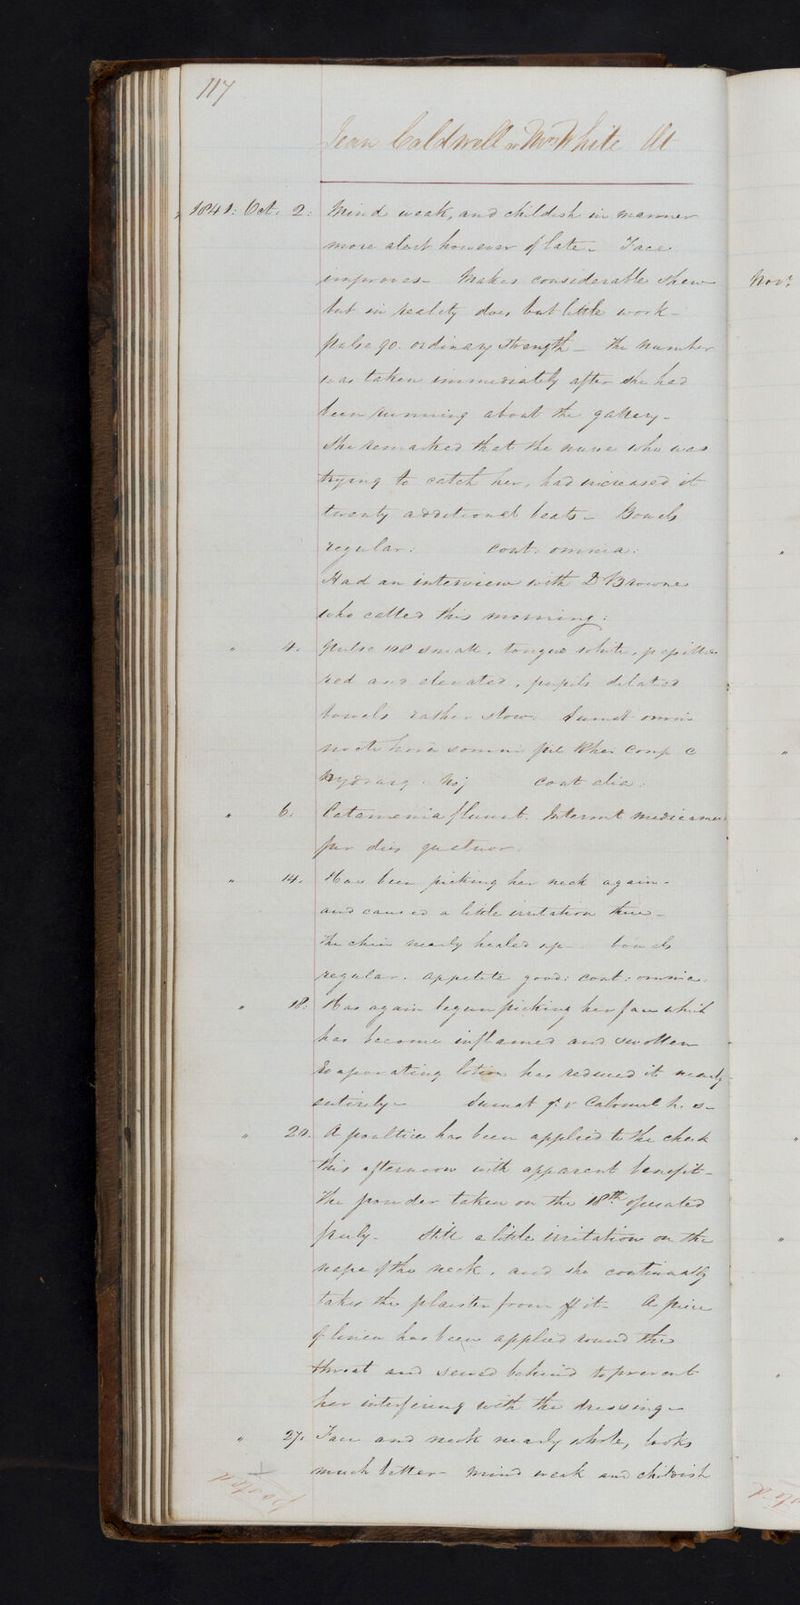 117
Jean Caldwell or Mrs White At
1841: Oct. 2: Mind weak, and childish in manner
more alert however of late - Face
improves - Makes considerable shew
but in reality does but little work -
pulse 90 ordinary strength - the number
was taken immediately after she had
been running about the gallery -
She remarked that the nurse who was
trying to catch her, had increased it
twenty additional beats - Bowels
regular: cont: omnia:
Had an interview with Dr Browne
who called this morning:
" 4. Pulse 108 small, tongue white, papillae
red and elevated, pupils dilated
bowels rather slow. Sumat omni
nocte hora somni pil Rhei Comp c
Hydrarg. No j cont alia:
" 6. Catamenia fluunt. Intermt medicamen
per dies quatuor.
" 14. Has been picking her neck again -
and caused a little irritation there -
The chin nearly healed up - bowels
regular. appetite good: cont: omnia.
" 18. Has again begun picking her face which
has become inflamed and swollen
Evaporating lotion has reduced it nearly
entirely - Sumat gr v Calomel h. s -
" 20. A poultice has been applied to the cheek
this afternoon with apparent benefit -
The powder taken on the 18th operated
freely. Still a little irritation on the
nape of the neck, and she continually
takes the plaister from off it - A piece
of linen has been applied round the
throat and sewed behind to prevent
her interfering with the dressing -
" 27. Face and neck nearly whole, looks
much better - mind weak and childish
Novr